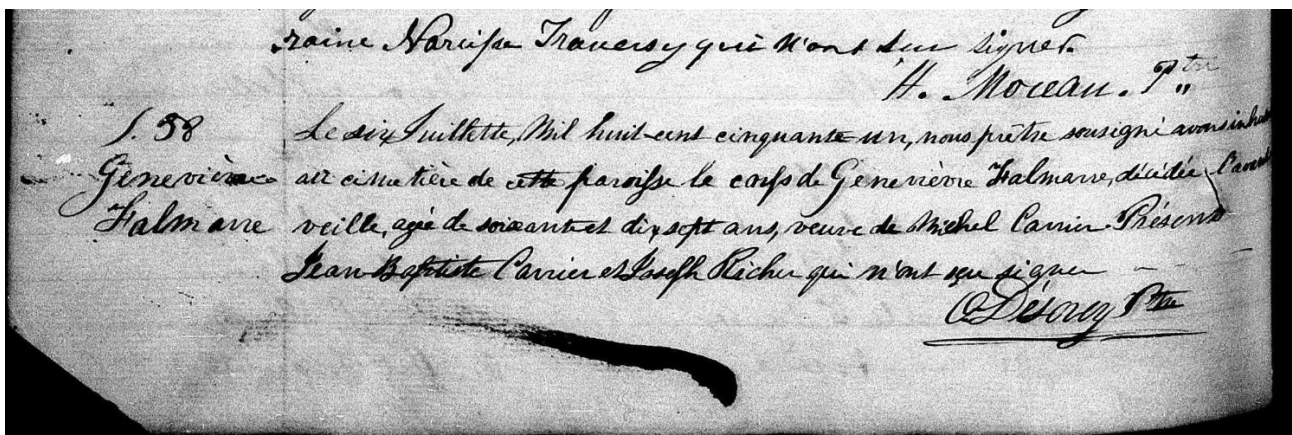 raine Narcisse Traversy qui n'ont su signer.
H. Moreau. Ptre
S. 38
Le six Juillette, Mil huit-cent cinquante un, nous prêtre sousigné avons inhumé
Geneviève
au cimetière de cette paroisse le corps de Geneviève Falmarre, décédée l'avant
Falmarre
veille, agée de soixante et dix sept ans, veuve de Michel Carrier. Présents
Jean Baptiste Carrier et Joseph Richer qui n'ont su signer
Désorcy Ptre